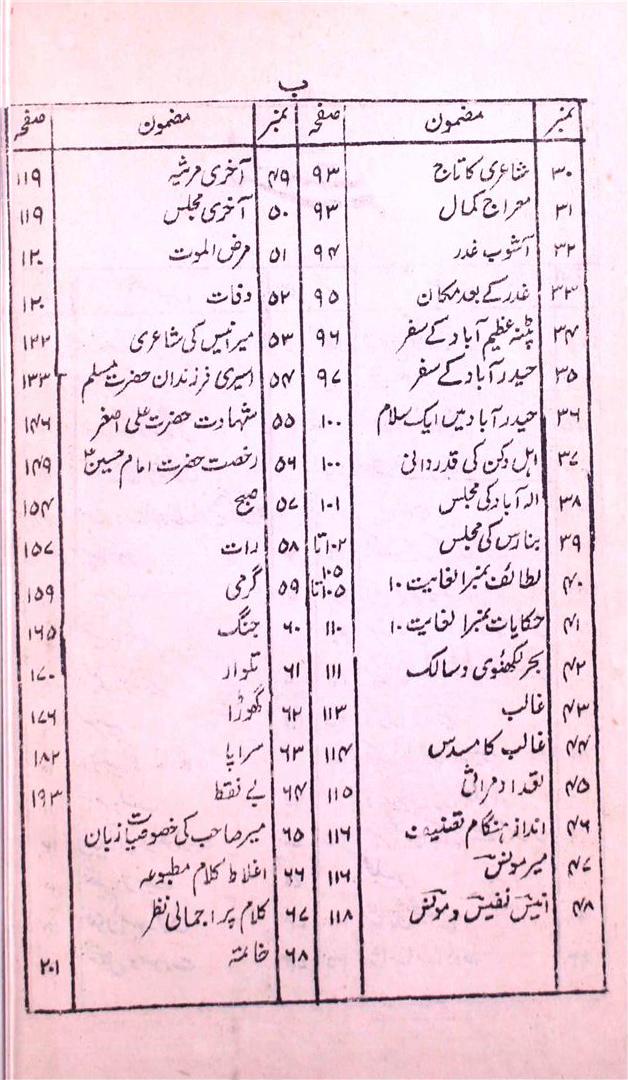 ب
نمبر مضمون صفحہ نمبر مضمون صفحہ
۳۰ شاعری کا تاج ۹۳ ۴۹ آخری مرثیہ ۱۱۹
۳۱ معراج کمال ۹۳ ۵۰ آخری مجلس ۱۱۹
۳۲ آشوب غدر ۹۴ ۵۱ مرض الموت ۱۲۰
۳۳ غدر کے بعد مکان ۹۵ ۵۲ وفات ۱۲۰
۳۴ پٹنہ عظیم آباد کے سفر ۹۶ ۵۳ میر انیس کی شاعری ۱۲۲
۳۵ حیدرآباد کے سفر ۹۷ ۵۴ اسیری فرزندان حضرت مسلم ۱۳۳
۳۶ حیدرآباد میں ایک سلام ۱۰۰ ۵۵ شہادت حضرت علی اصغر ۱۴۶
۳۷ اہل دکن کی قدردانی ۱۰۰ ۵۶ رخصت حضرت امام حسینؑ ۱۴۹
۳۸ الہ آباد کی مجلس ۱۰۱ ۵۷ صبح ۱۵۴
۳۹ بنارس کی مجلس ۱۰۲ تا ۱۰۵ ۵۸ رات ۱۵۷
۴۰ لطائف نمبر ۱ لغایت ۱۰ ۱۰۵ تا ۵۹ گرمی ۱۵۹
۴۱ حکایات نمبر ۱ لغایت ۱۰ ۱۱۰ ۶۰ جنگ ۱۶۵
۴۲ بحر لکھنوی و سالک ۱۱۱ ۶۱ تلوار ۱۷۰
۴۳ غالب ۱۱۳ ۶۲ گھوڑا ۱۷۶
۴۴ غالب کا مسدس ۱۱۴ ۶۳ سراپا ۱۸۲
۴۵ تعداد مراثی ۱۱۵ ۶۴ بے نقط ۱۹۳
۴۶ انداز ہنگام تصنیف ۱۱۶ ۶۵ میر صاحب کی خصوصیات زبان
۴۷ میر مونسؔ ۱۱۶ ۶۶ اغلاط کلام مطبوعہ
۴۸ انیسؔ نفیسؔ و مونسؔ ۱۱۸ ۶۷ کلام پر اجمالی نظر
۶۸ خاتمہ ۲۰۱